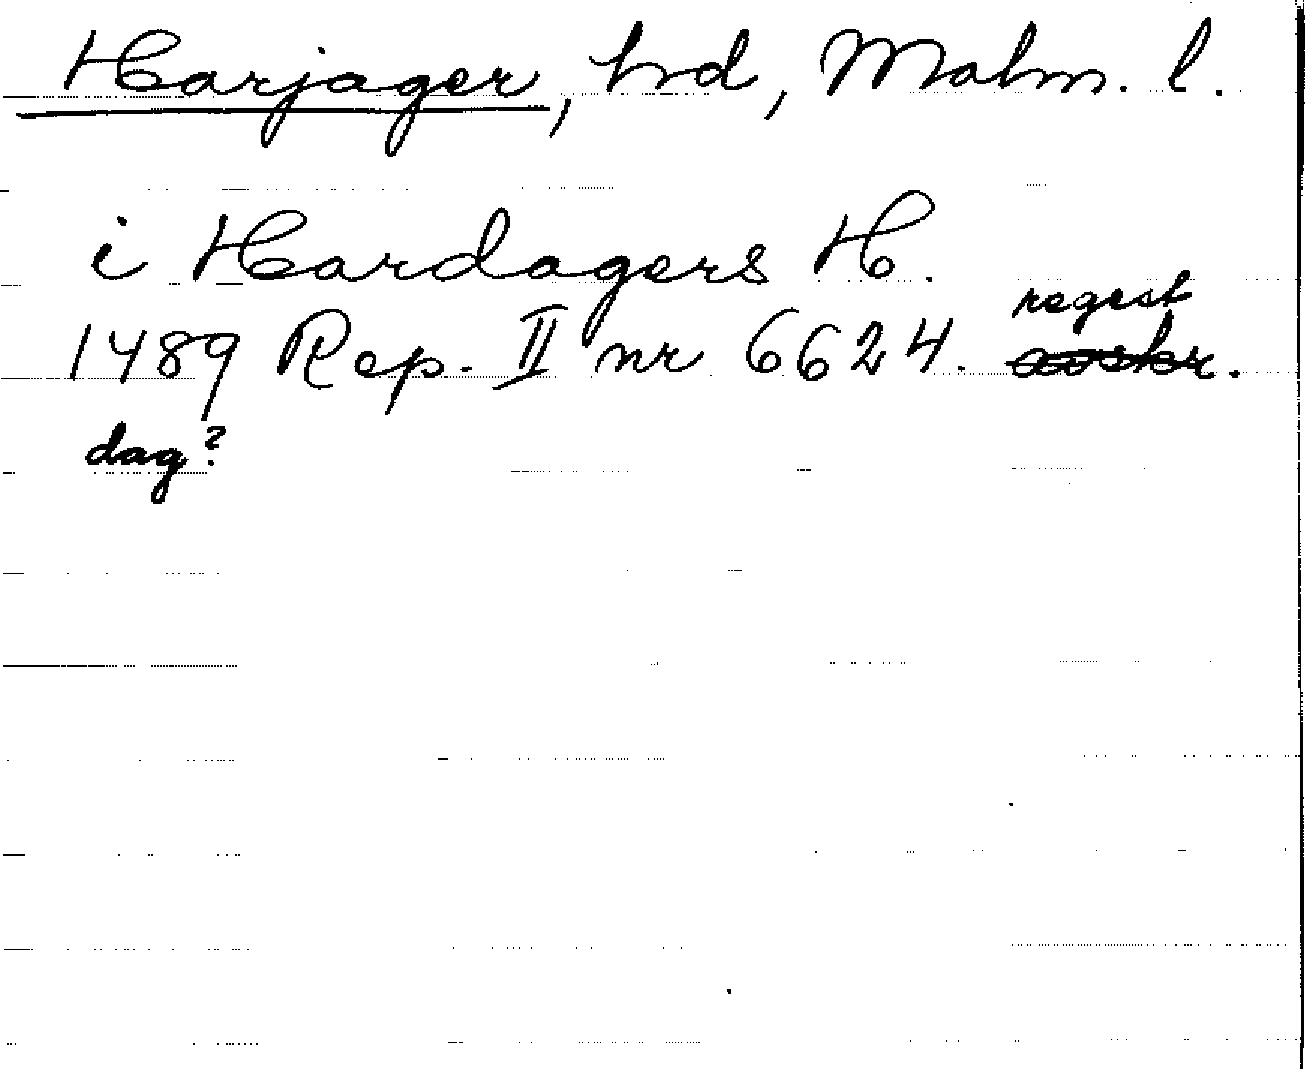 Harjager, hd, Malm. l.
i Hardagers H.
1489 Rep. II nr 6624. regest
dag?